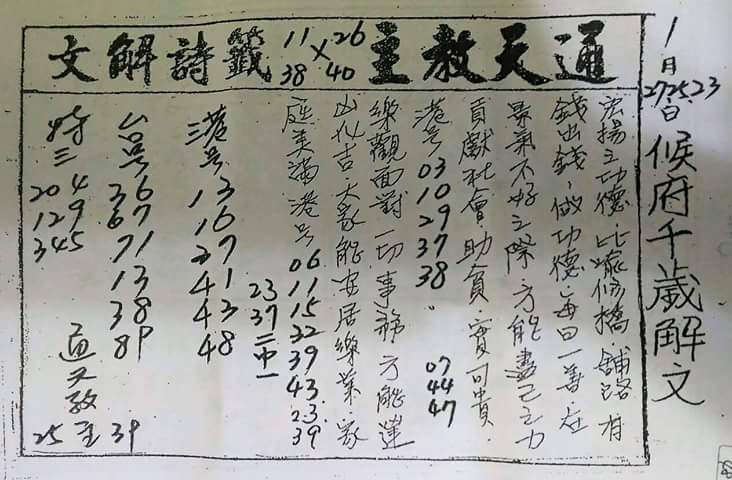 1日
27 25 23
候府千歲解文
通天教主 26 × 40 11 38 籤詩解文
宏揚之功德比喻修橋舖路有
錢出錢、做功德、每日一善在
景氣不好之際、方能盡己之力
貢獻社會助貧、實可貴、
港号 03 10 29 37 38
07 44 47
樂觀面對一切事務方能逢
凶化吉大家能安居樂業、家
庭美滿港号 06 11 15 22 39 43 23 39
23 37 二中一
港三号 13 16 27 41 43 48
台号 36 67 71 13 38 89
特三 204 129 345
通天教主
25 39